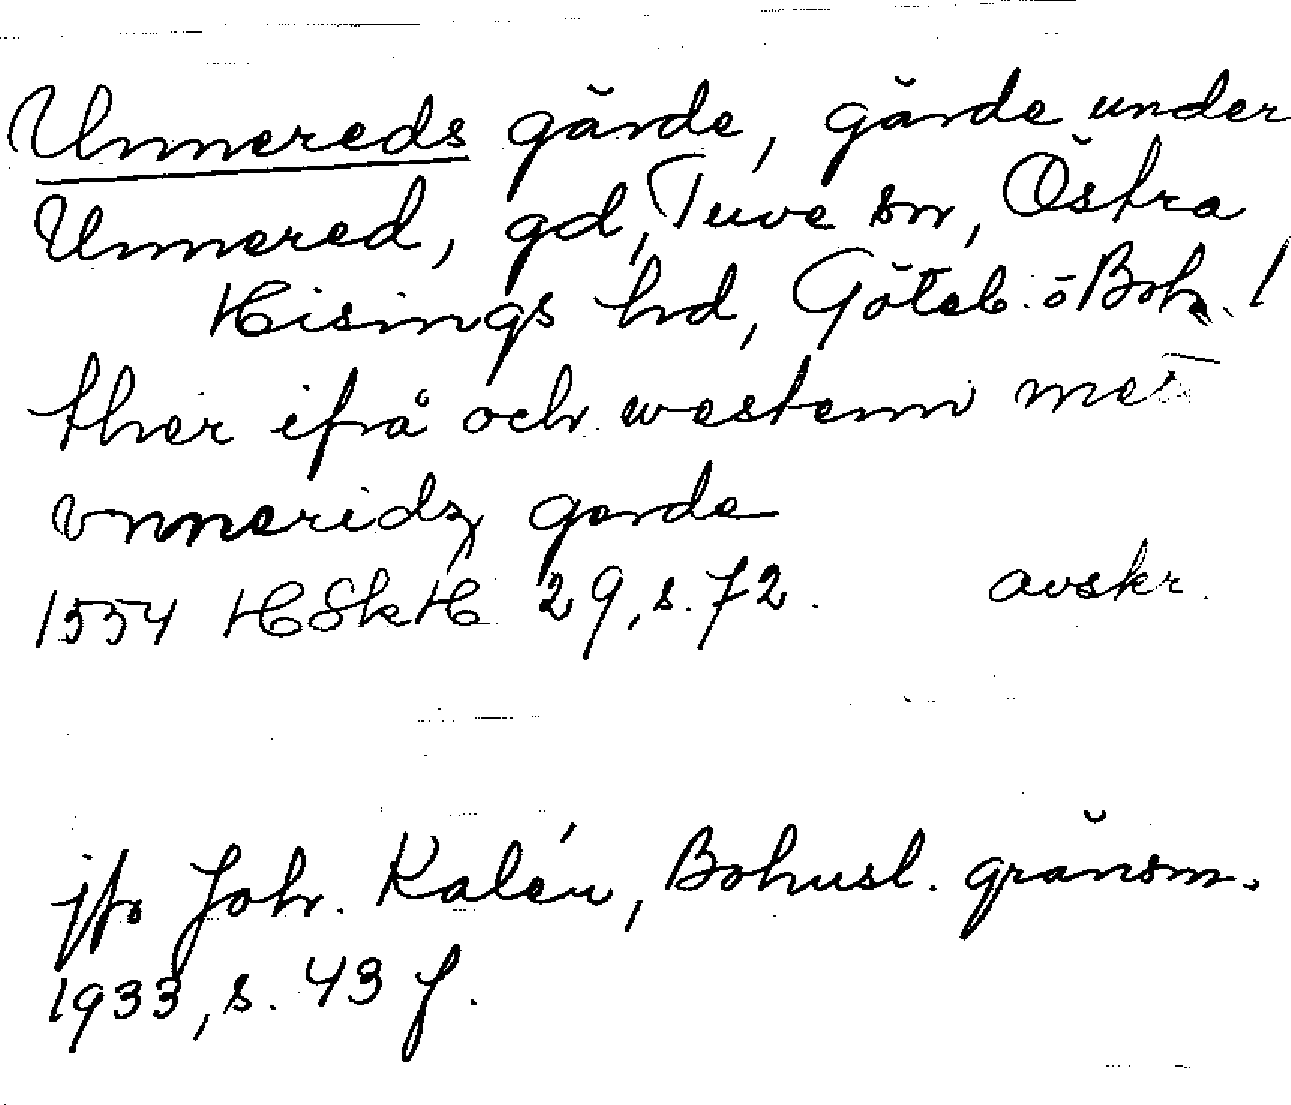 Unnereds gärde, gärde under
Unnered, gd, Tuve sn, Östra
Hisings hd, Göteb. o Boh. l
ther ifrå och westenn
vnneridz gerde
1554 HSkH 29, s. 72. avskr.
jfr Joh. Kalén, Bohusl. gränsm.
1933, s. 43 f.